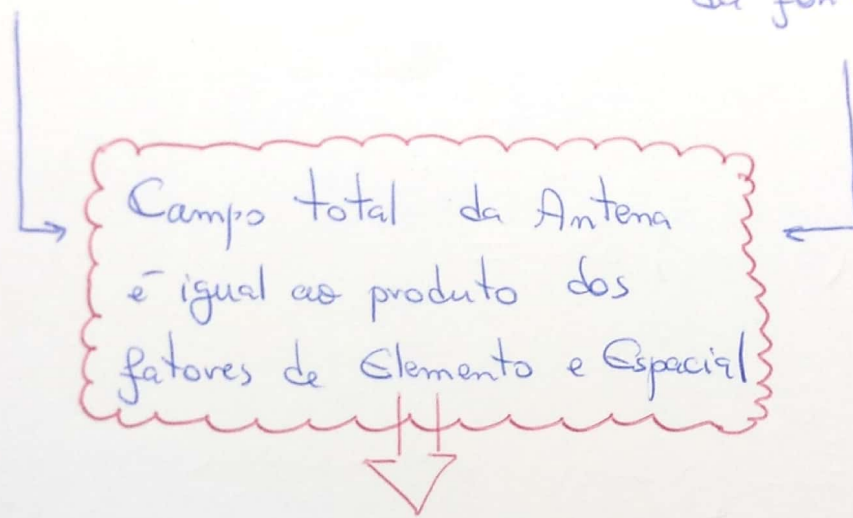 Campo total da Antena
é igual ao produto dos
fatores de Elemento e Espacial